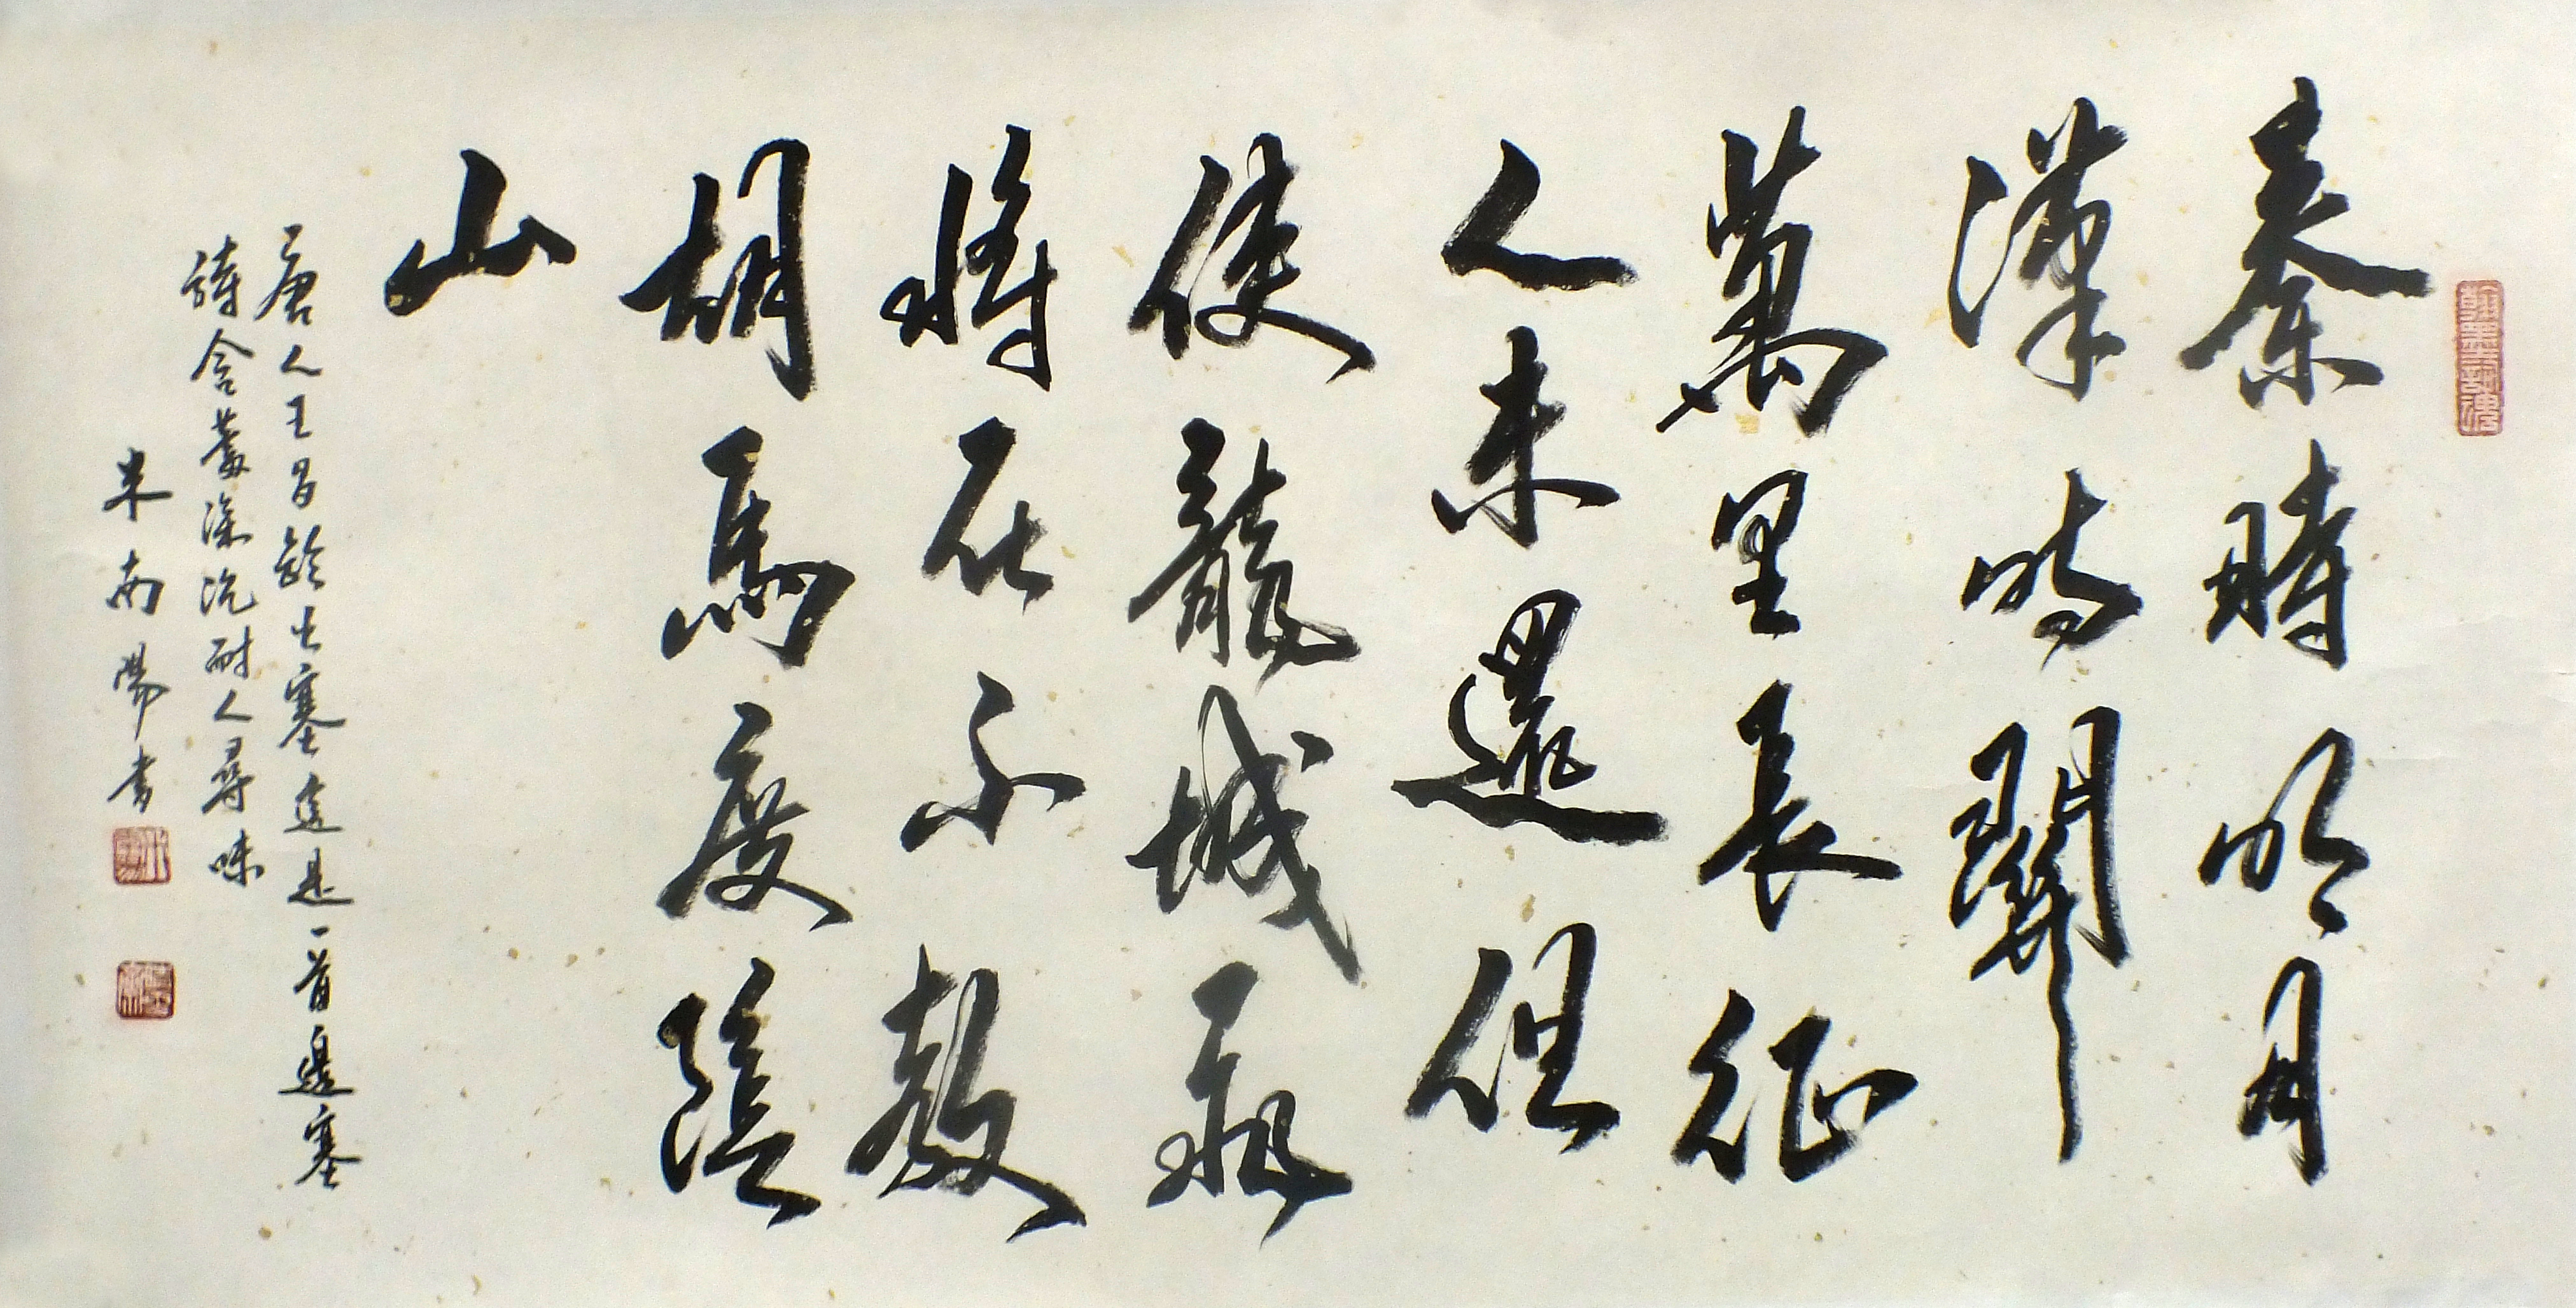 秦時明月
漢時關
萬里長征
人未還但
使龍城飛
將在不教
胡馬度陰
山
唐人王昌齡出塞這是一首邊塞
詩含蓄深沉耐人尋味
米南陽書